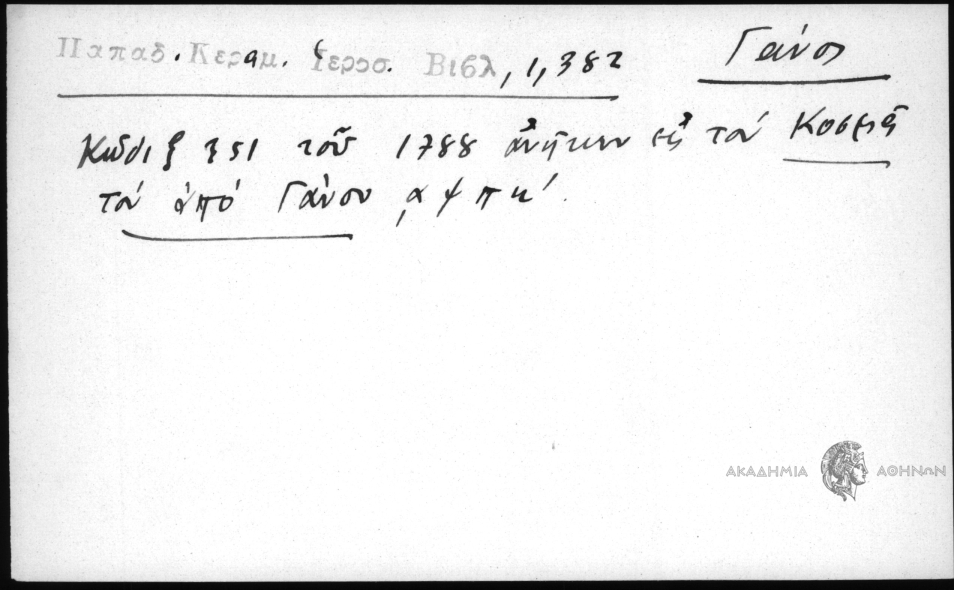 Παπαδ. Κεραμ. Ἱεροσ. Βιβλ, 1, 382
Γάνος
Κῶδιξ 351 τοῦ 1788 ἀνῆκεν εἰς τὸν Κοσμᾶ
τὸν ἀπὸ Γάνου ͵αψπη´.
ΑΚΑΔΗΜΙΑ ΑΘΗΝΩΝ